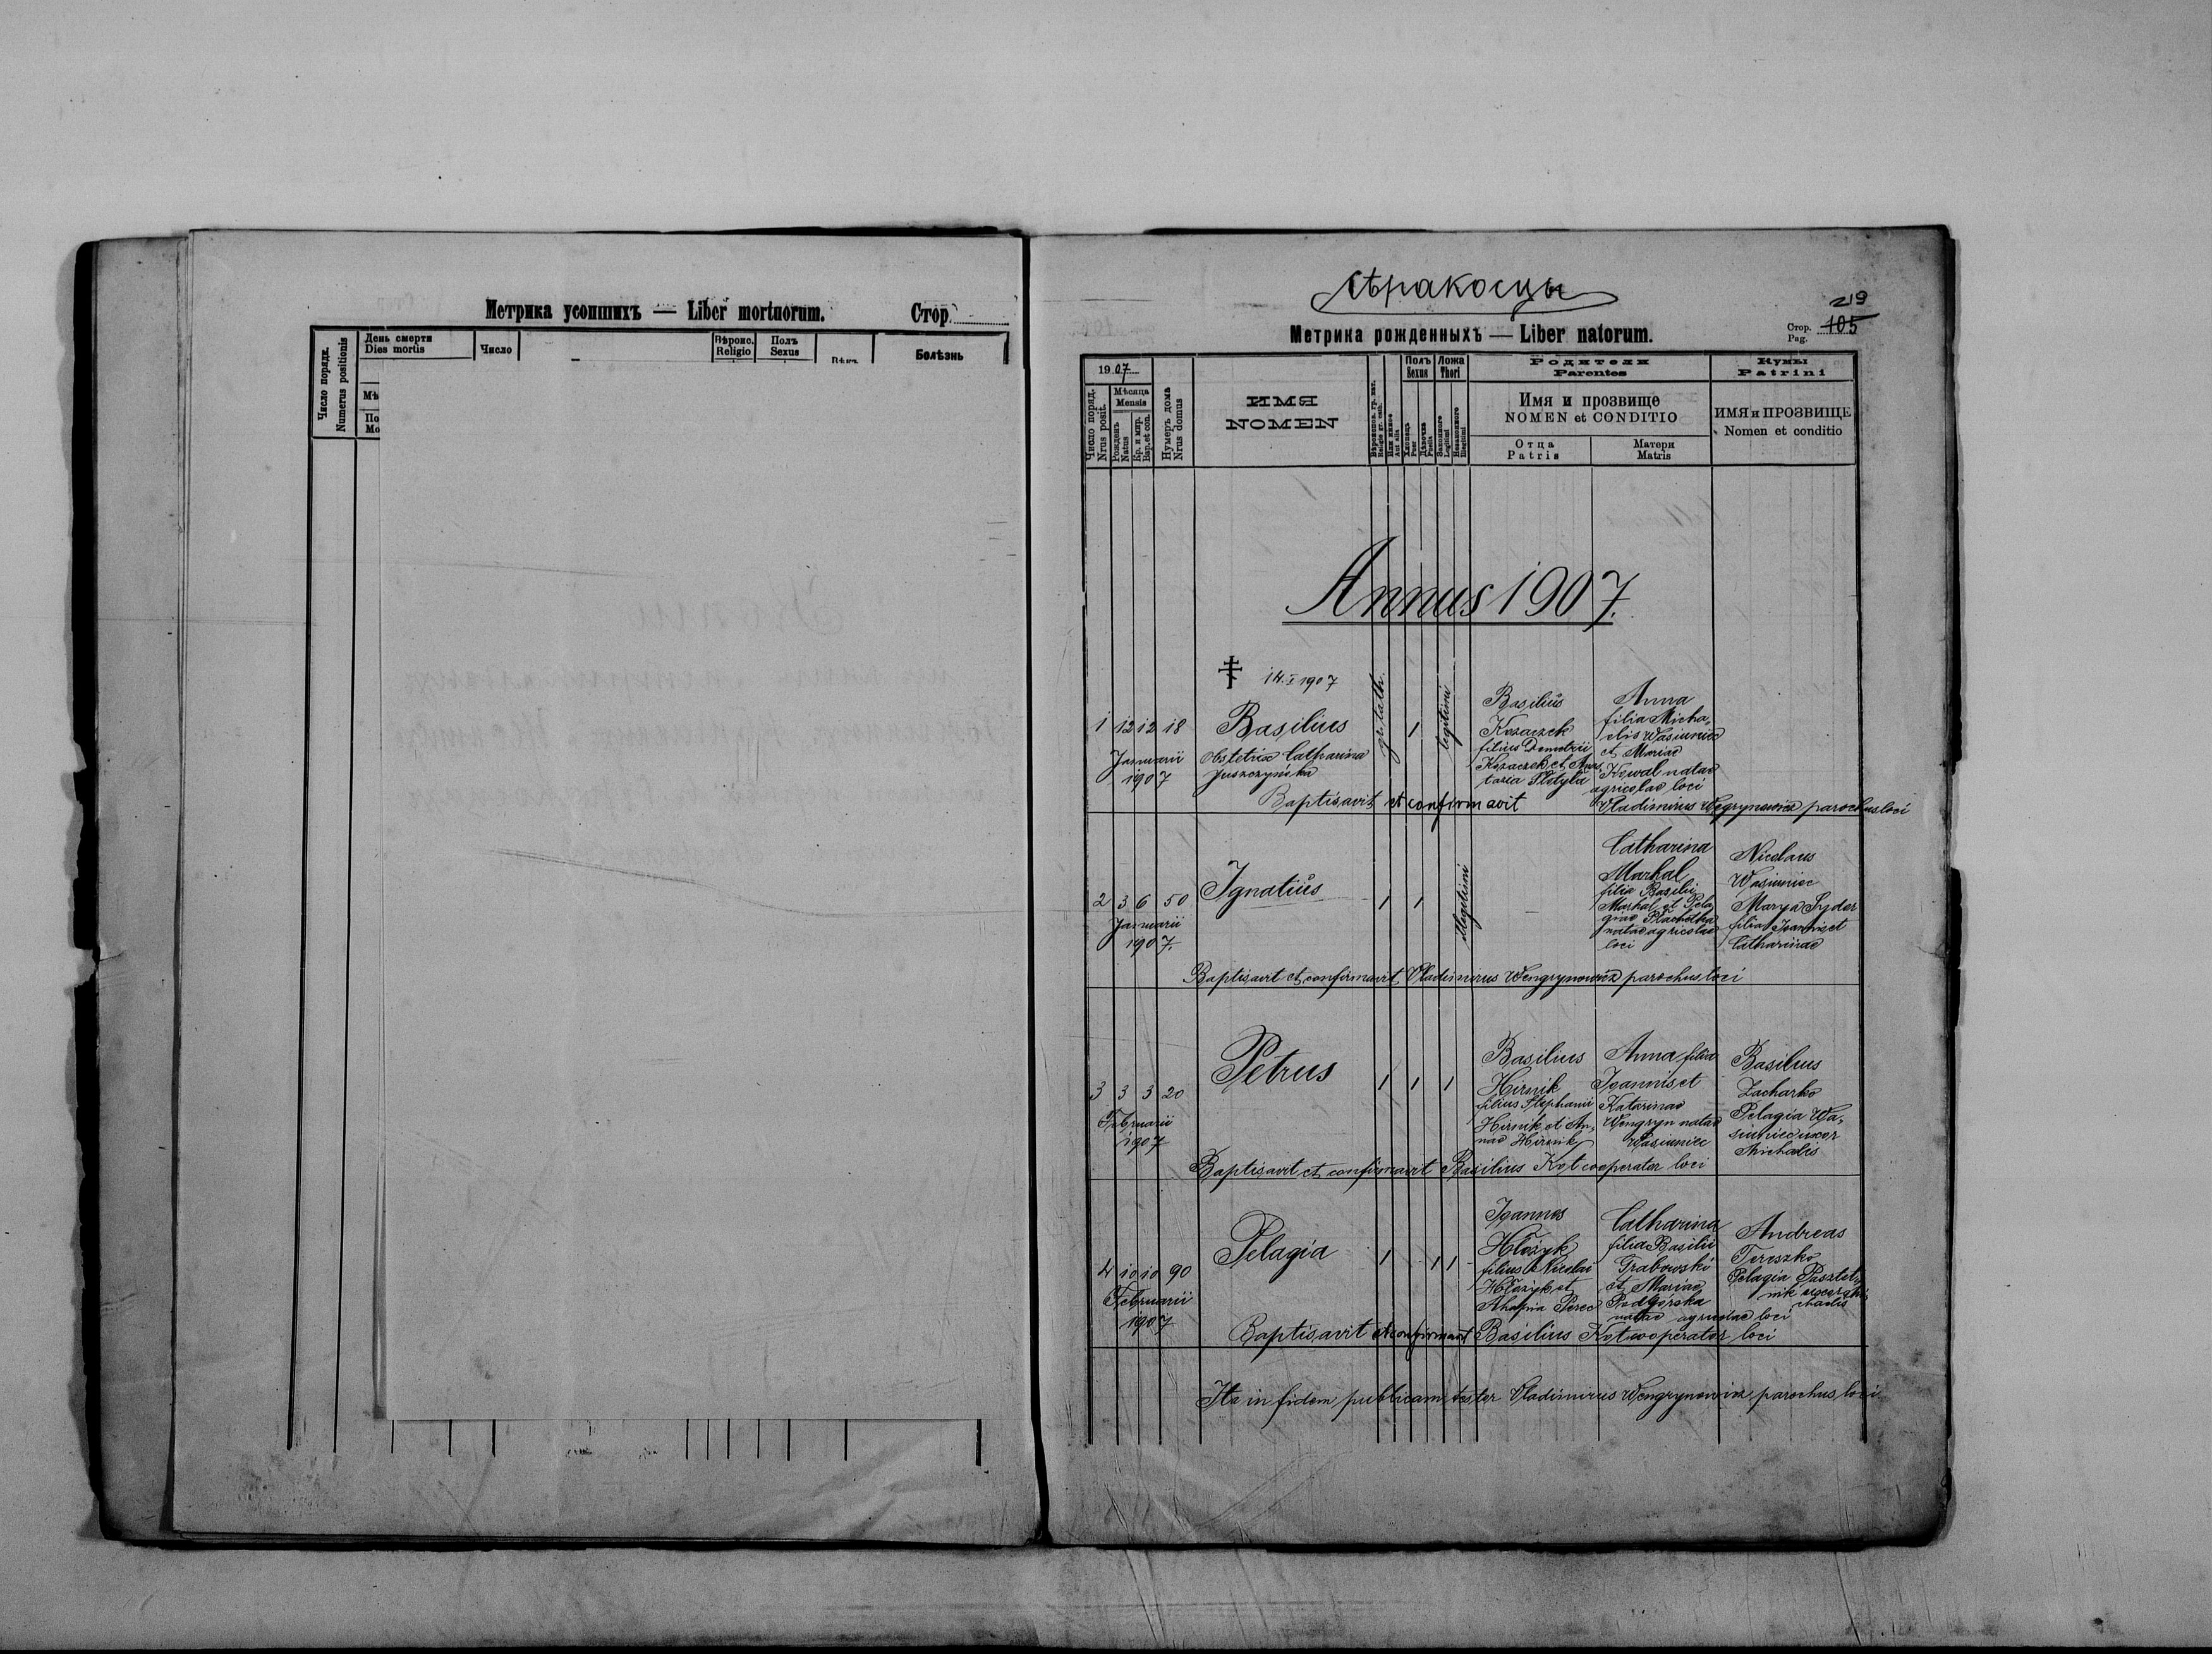 Метрика усопшихъ — Liber mortuorum.
Стор.
Число порядк.
Numerus positionis
День смерти
Dies mortis
Число
Вѣроис.
Religio
Полъ
Sexus
Болѣзнь
Мѣ
По
Mo
Сѣракосцы
219
Метрика рожденныхъ — Liber natorum.
Стор.
Pag.
105
1907
Число поряд.
Nrus posit.
Мѣсяца
Mensis
Рожденъ
Natus
Кр. и мѵр.
Bap. et con.
Нумеръ дома
Nrus domus
ИМЯ
NOMEN
Полъ
Sexus
Хлопецъ
Puer
Дѣвочка
Puella
Ложа
Thori
Законного
Legitimi
Незаконного
Illegitimi
Родители
Parentes
Имя и прозвище
NOMEN et CONDITIO
Отца
Patris
Матери
Matris
Кумы
Patrini
ИМЯ и ПРОЗВИЩЕ
Nomen et conditio
Annus 1907.
14. I 1907
1 12 12 18
Januarii
1907
Basilius
Obstetrix Catharina
Juszczyńska
gr. cath.
1
legitimi
Basilius
Kozaczek
filius Demetrii
Kozaczek et Anas,
tazia
Anna
filia Micha,
elis Wasiuniec
et Mariae
Kowal natae
agricolae loci
Baptisavit et confirmavit Vladimirus Węgrynowicz parochus loci
2 3 6 50
Januarii
1907.
Ignatius
1 1
illegitimi
—
Catharina
Markal
filia Basilii
Markal et Pela
giae
natae agricolae
loci
Nicolaus
Wasiuniec
Marya Syder
filia Joannis et
Catharinae
Baptisavit et confirmavit Vladimirus Wengrynowicz parochus loci
3 3 3 20
Februarii
1907
Petrus
1 1 1
Basilius
Hirnik
filius Stephanii
Hirnik et An,
nae Hirnik
Anna filia
Joannis et
Katarinae
Wengryn natae
Wasiuniec
Basilius
Zacharko
Pelagia Wa,
siuniec uxor
Michaelis
Baptisavit et confirmavit Basilius Kot cooperator loci
4 10 10 90
Februarii
1907
Pelagia
1 1 1
Joannes
Hłożyk
filius Nicolai
Hłożyk et
Ahapia Perec
Catharina
filia Basilii
Grabowski
et Mariae
Podgórska
natae agricolae loci
Andreas
Tereszko
Pelagia Pasztet,
nik uxor Mi,
chaelis
Baptisavit et confirmavit Basilius Kot cooperator loci
Ita in fidem publicam testor Vladimirus Wengrynowicz parochus loci